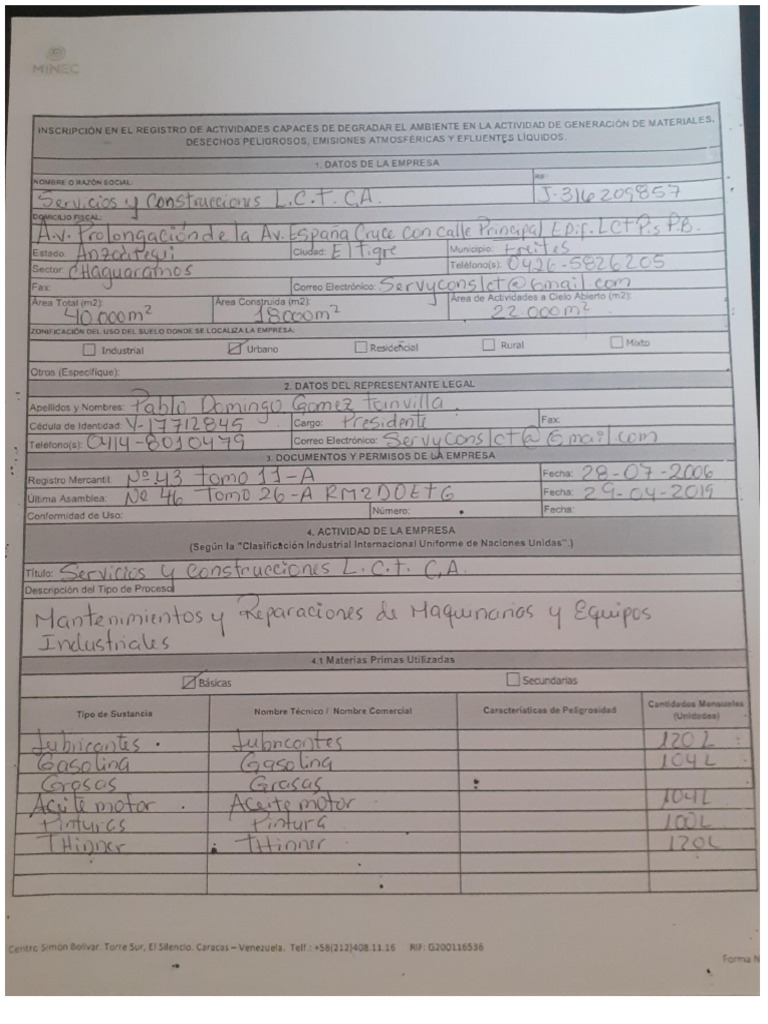 MINEC
INSCRIPCIÓN EN EL REGISTRO DE ACTIVIDADES CAPACES DE DEGRADAR EL AMBIENTE EN LA ACTIVIDAD DE GENERACIÓN DE MATERIALES,
DESECHOS PELIGROSOS, EMISIONES ATMOSFÉRICAS Y EFLUENTES LÍQUIDOS.
1. DATOS DE LA EMPRESA
NOMBRE O RAZÓN SOCIAL: RIF:
Servicios y Construcciones L.C.T. C.A. J-316209857
DOMICILIO FISCAL:
A.v. Prolongación de la Av. España Cruce con calle Principal Edif. LCT P.B.
Estado: Anzoátegui Ciudad: El Tigre Municipio: Freites
Sector: CHaguaramos Teléfono(s): 0426-5826205
Fax: Correo Electrónico: Servyconslct@Gmail.com
Área Total (m2): Área Construida (m2): Área de Actividades a Cielo Abierto (m2):
40000m² 18000m² 22000m²
ZONIFICACIÓN DEL USO DEL SUELO DONDE SE LOCALIZA LA EMPRESA:
Industrial Urbano Residencial Rural Mixto
Otros (Especifique):
2. DATOS DEL REPRESENTANTE LEGAL
Apellidos y Nombres: Pablo Domingo Gomez
Cédula de Identidad: V-17712845 Cargo: Presidente Fax:
Teléfono(s): 0414-8010479 Correo Electrónico: Servyconslct@Gmail.com
3. DOCUMENTOS Y PERMISOS DE LA EMPRESA
Registro Mercantil: Nº 43 tomo 11-A Fecha: 28-07-2006
Última Asamblea: Nº 46 Tomo 26-A RM2DOETG Fecha: 29-04-2019
Conformidad de Uso: Número: Fecha:
4. ACTIVIDAD DE LA EMPRESA
(Según la "Clasificación Industrial Internacional Uniforme de Naciones Unidas".)
Título: Servicios y Construcciones L.C.t. C.A.
Descripción del Tipo de Proceso:
Mantenimientos y Reparaciones de Maquinarias y Equipos
Industriales
4.1 Materias Primas Utilizadas
Básicas Secundarias
Tipo de Sustancia Nombre Técnico / Nombre Comercial Características de Peligrosidad Cantidades Mensuales (Unidades)
Lubricantes Lubricantes 120 L
Gasolina Gasolina 104 L
Grasas Grasas
Aceite motor Aceite motor 104L
Pinturas Pintura 100L
THinner THinner 120L
Centro Simón Bolívar. Torre Sur, El Silencio. Caracas – Venezuela. Telf.: +58(212)408.11.16 RIF: G200116536
Forma N